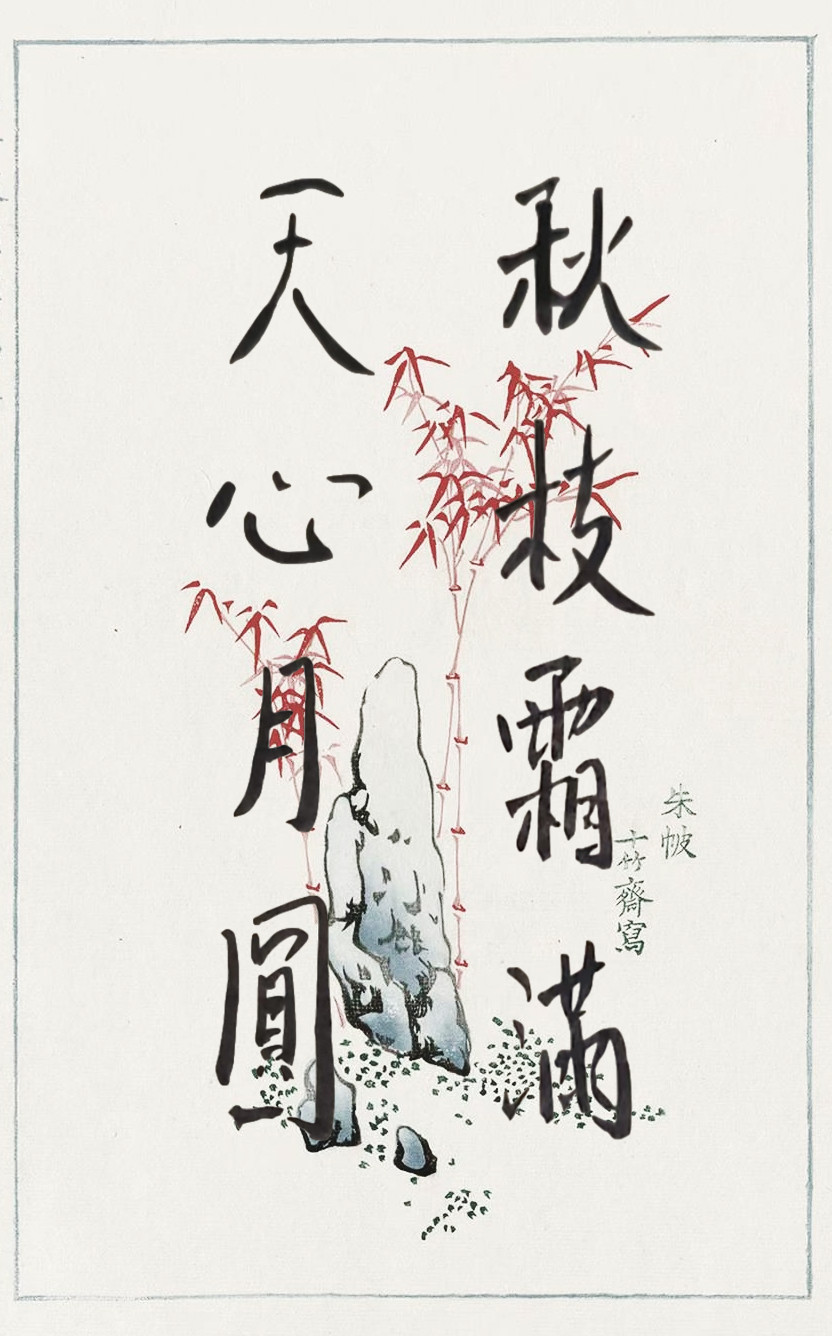 秋枝霜滿
天心月圓
朱帔
十竹齋寫